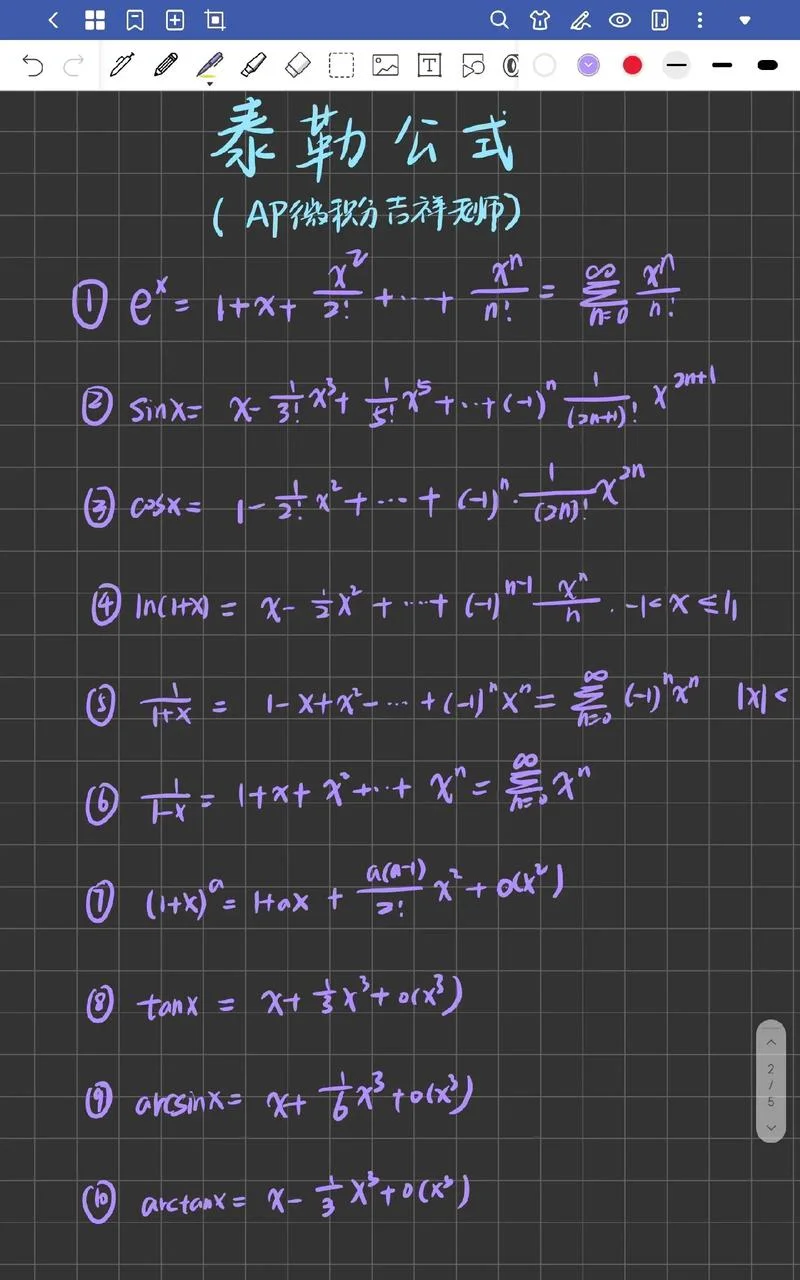 泰勒公式
(AP微积分吉祥老师)
① e^x = 1+x+ x^2/2! +...+ x^n/n! = ∞∑n=0 x^n/n!
② sinx= x- 1/3! x^3+ 1/5! x^5 +...+(-1)^n 1/(2n+1)! x^2n+1
③ cosx= 1- 1/2! x^2 +...+ (-1)^n · 1/(2n)! x^2n
④ ln(1+x) = x- 1/2 x^2 +...+ (-1)^n-1 x^n/n . -1< x ≤1,
⑤ 1/1+x = 1-x+x^2-...+(-1)^n x^n = ∞∑n=0 (-1)^n x^n |x|<
⑥ 1/1-x = 1+x+x^2+...+ x^n = ∞∑n=0 x^n
⑦ (1+x)^a = 1+ax + a(a-1)/2! x^2 + o(x^2)
⑧ tanx = x+ 1/3 x^3 + o(x^3)
⑨ arcsinx= x+ 1/6 x^3 +o(x^3)
⑩ arctanx= x- 1/3 x^3 +o(x^3)
2
/
5